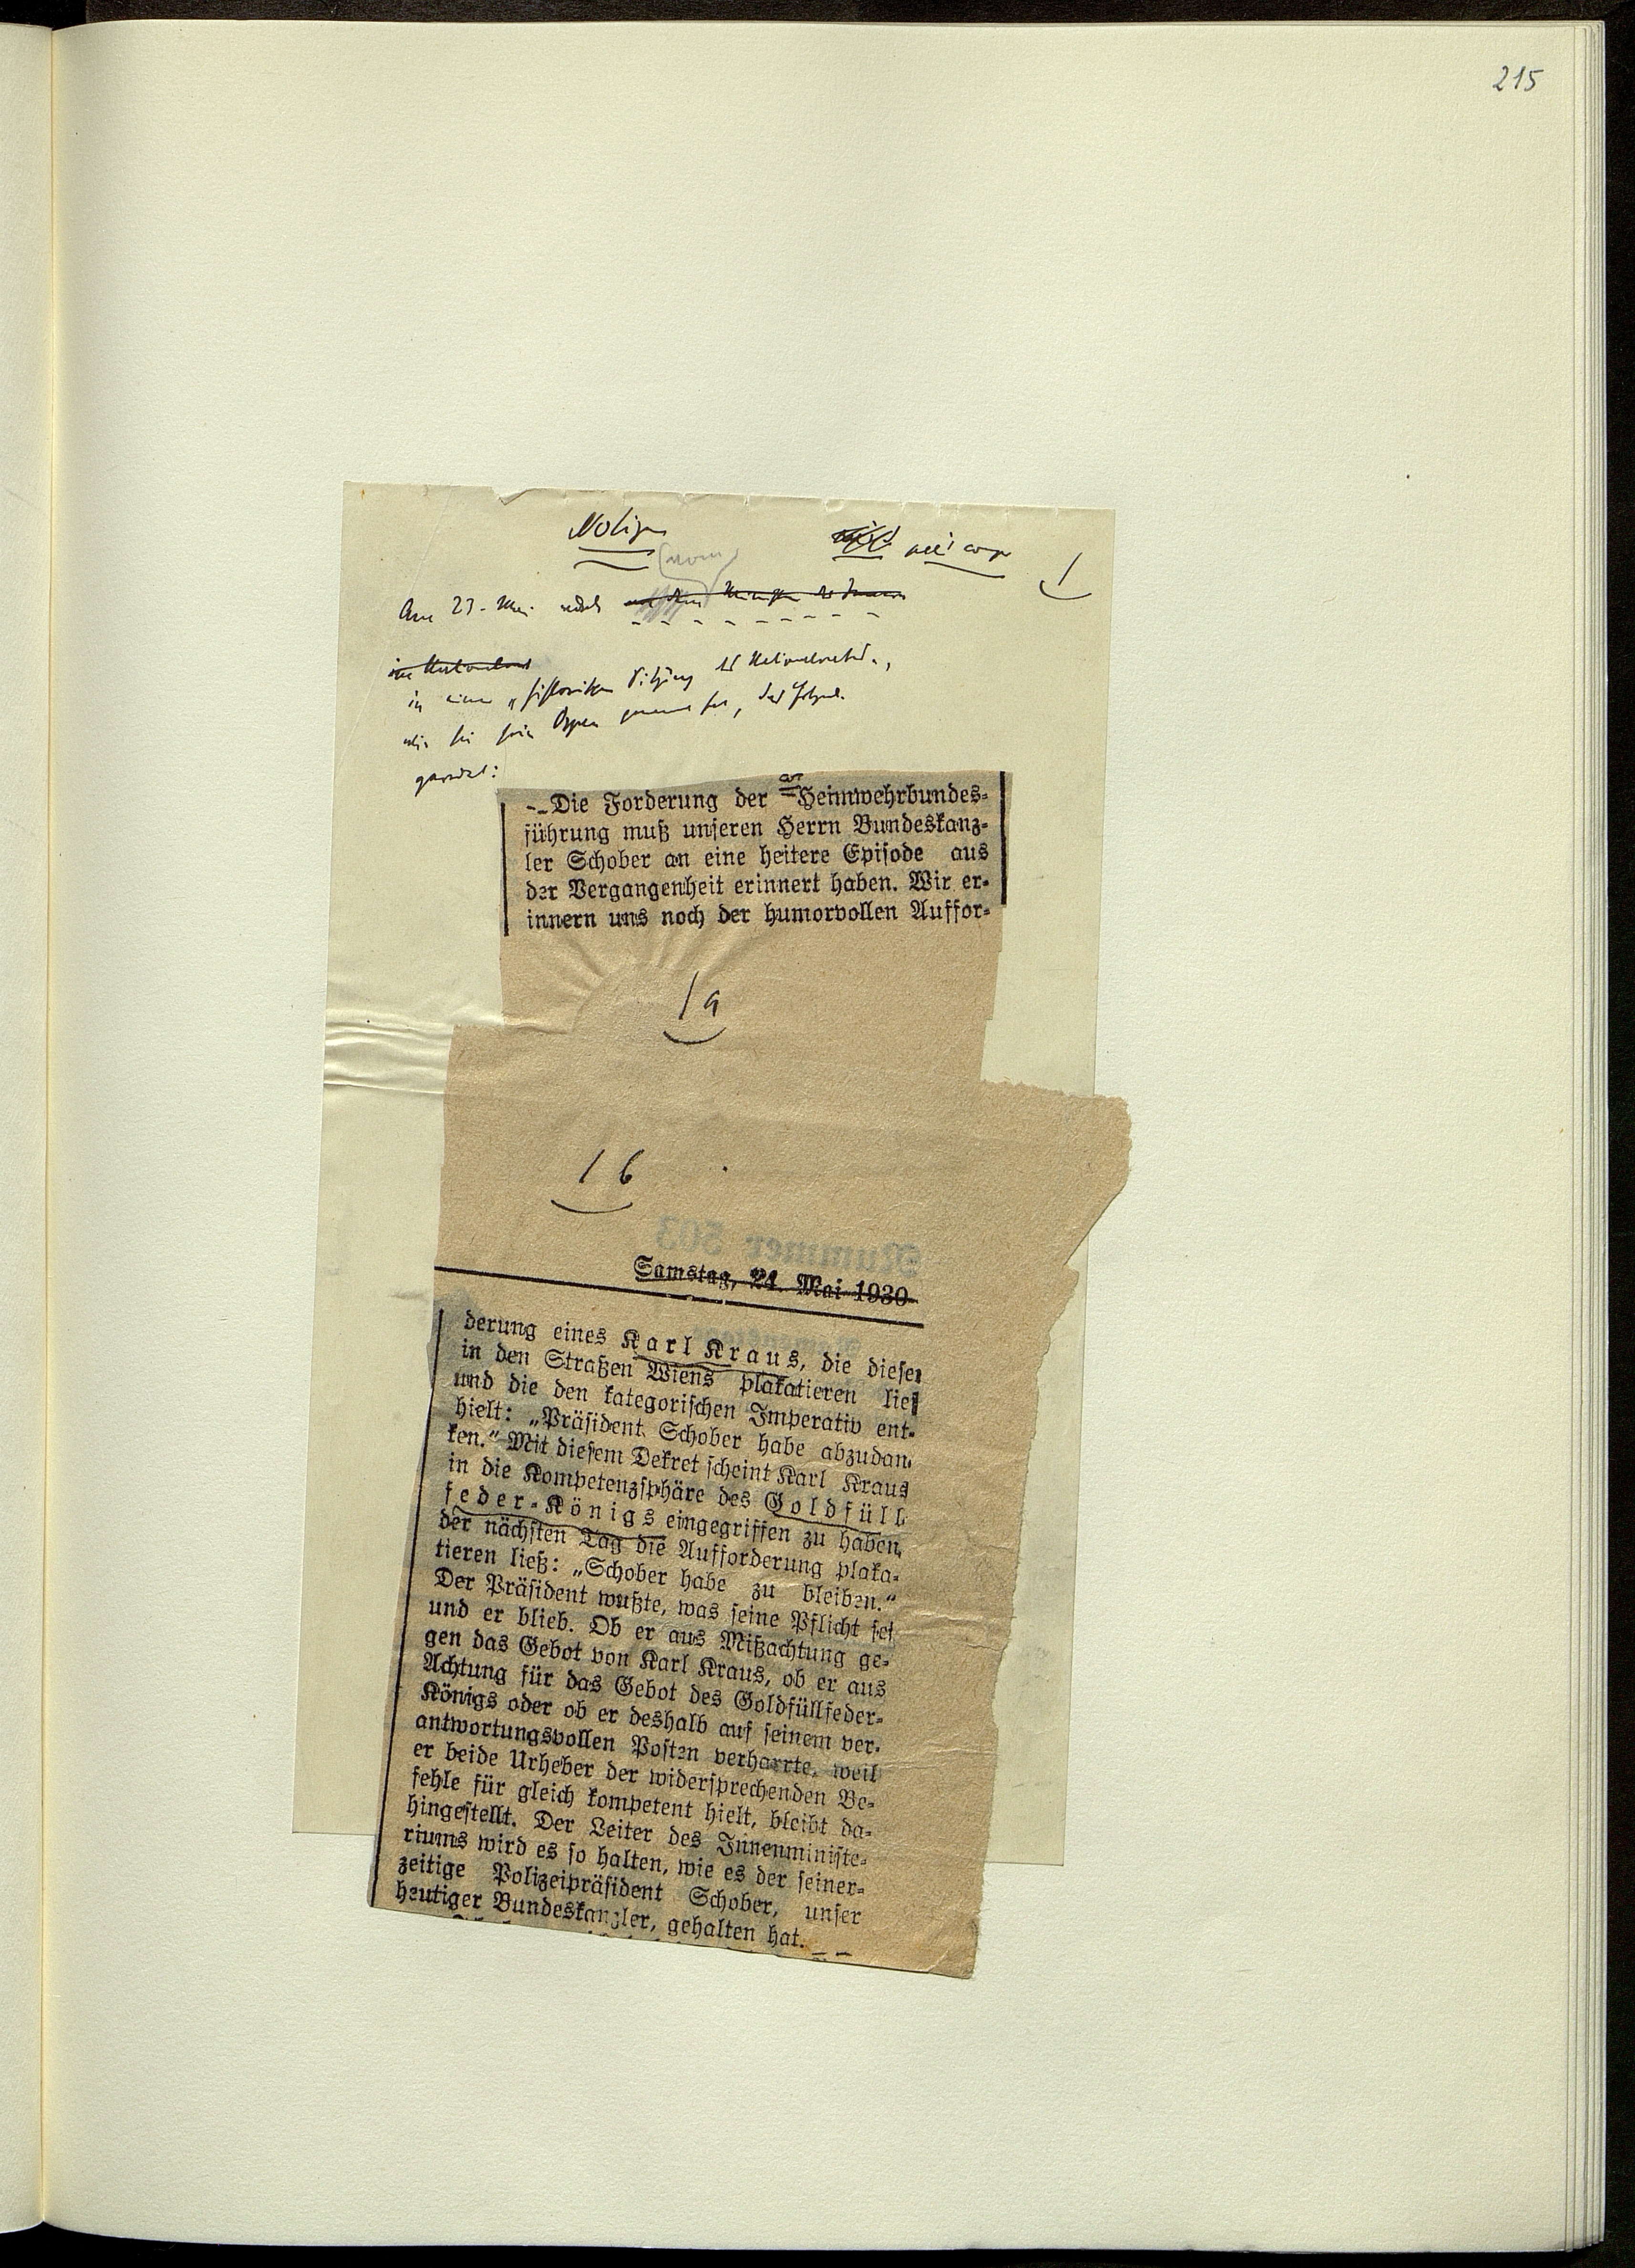 215
Notizen
1
Am 23. Mai
in einer „historischen Sitzung des Nationalrates",
wie sie sein Organ genannt hat, das folgende
geredet:
-- Die Forderung der Heimwehrbundes-
führung muß unseren Herrn Bundeskanz-
ler Schober an eine heitere Episode aus
der Vergangenheit erinnert haben. Wir er-
innern uns noch der humorvollen Auffor-
1a
1b
Nummer 503
Samstag, 24. Mai 1930
derung eines Karl Kraus, die dieser
in den Straßen Wiens plakatieren ließ
und die den kategorischen Imperativ ent-
hielt: „Präsident Schober habe abzudan-
ken." Mit diesem Dekret scheint Karl Kraus
in die Kompetenzsphäre des Goldfüll-
feder-Königs eingegriffen zu haben,
der nächsten Tag die Aufforderung plaka-
tieren ließ: „Schober habe zu bleiben."
Der Präsident wußte, was seine Pflicht sei
und er blieb. Ob er aus Mißachtung ge-
gen das Gebot von Karl Kraus, ob er aus
Achtung für das Gebot des Goldfüllfeder-
Königs oder ob er deshalb auf seinem ver-
antwortungsvollen Posten verharrte, weil
er beide Urheber der widersprechenden Be-
fehle für gleich kompetent hielt, bleibt da-
hingestellt. Der Leiter des Innenministe-
riums wird es so halten, wie es der seiner-
zeitige Polizeipräsident Schober, unser
heutiger Bundeskanzler, gehalten hat. --